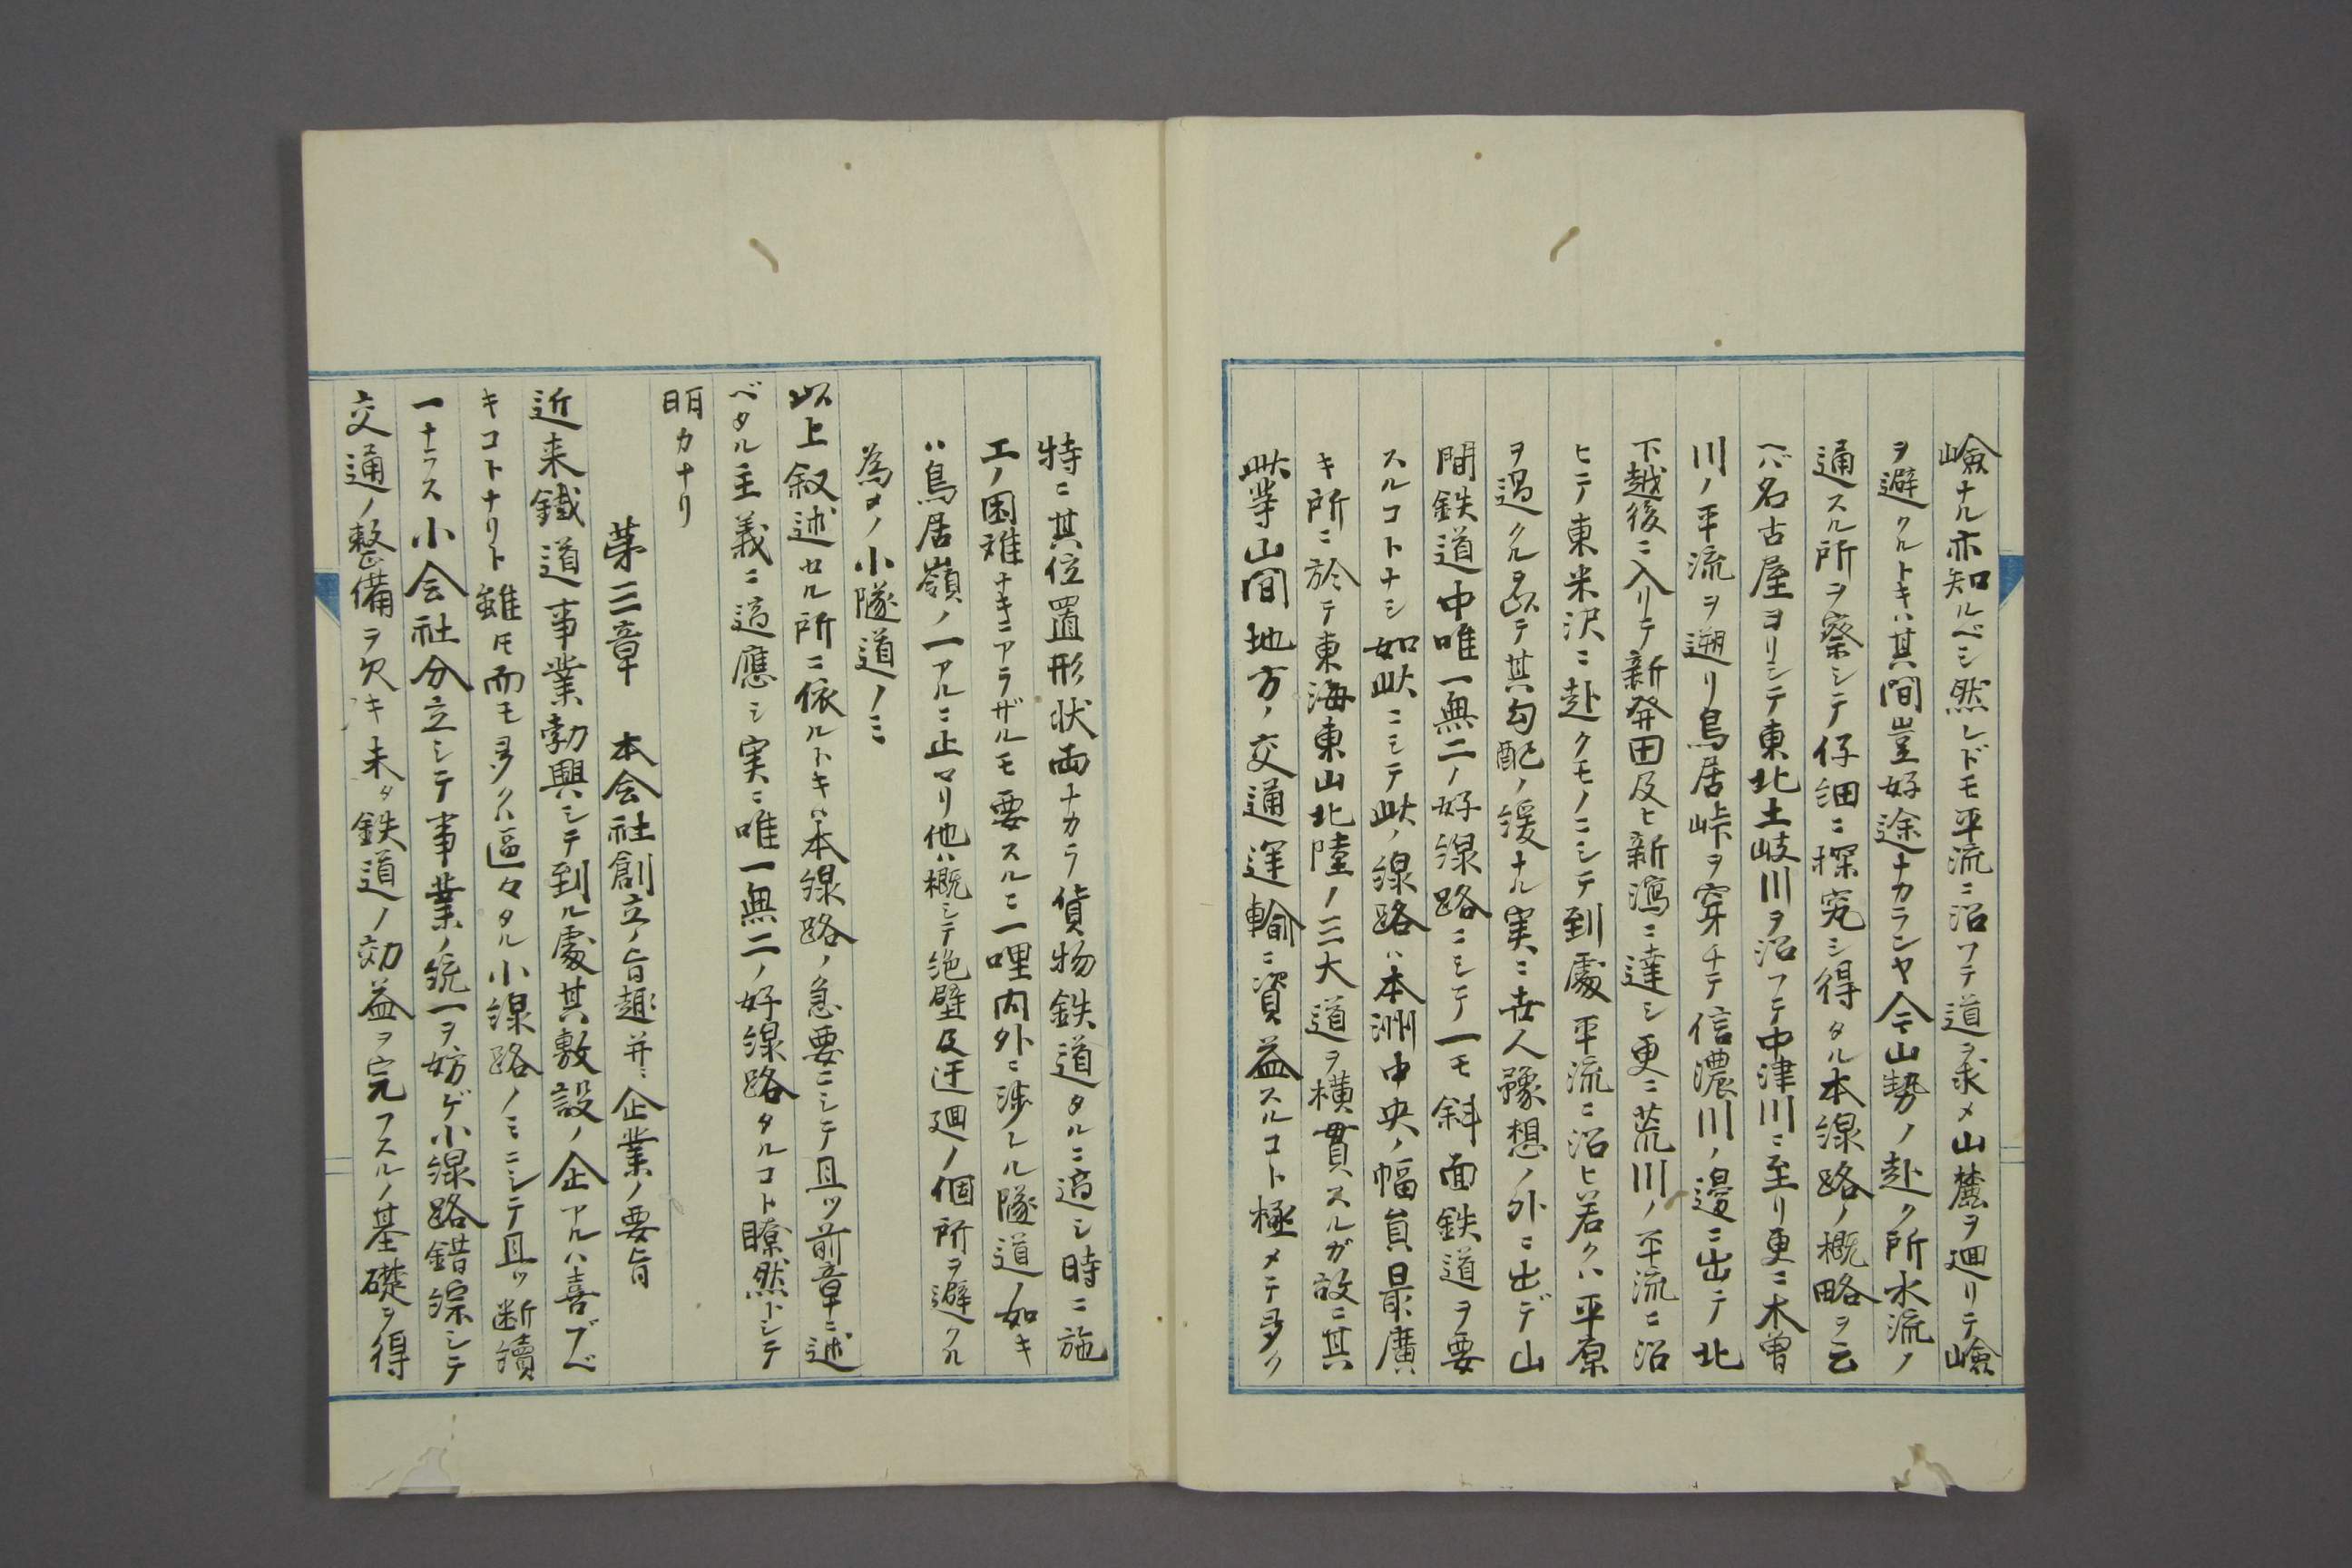 嶮ナル亦知ルベシ然レドモ平流ニ沿フテ道ヲ求メ山麓ヲ廻リテ嶮
ヲ避クルトキハ其間豈好途ナカランヤ今ニ山勢ノ赴ク所水流ノ
通スル所ヲ察シテ仔細ニ探究シ得タル本線路ノ概略ヲ云
ヘバ名古屋ヨリシテ東北土岐川ヲ沿フテ中津川ニ至リ更ニ木曽
川ノ平流ヲ遡リ鳥居峠ヲ穿チテ信濃川ノ邊ニ出テ北
下越後ニ入リテ新発田及ヒ新潟ニ達シ更ニ荒川ノ平流ニ沿
ヒテ東米沢ニ赴クモノニシテ到處平流ニ沿ヒ若クハ平原
ヲ過クルヲ以テ其勾配ノ緩ナル実ニ世人豫想ノ外ニ出デ山
間鉄道中唯一無二ノ好線路ニシテ一モ斜面鉄道ヲ要
スルコトナシ如此ニシテ此ノ線路ハ本洲中央ノ幅員最廣
キ所ニ於テ東海東山北陸ノ三大道ヲ横貫スルガ故ニ其
此等山間地方ノ交通運輸ニ資益スルコト極メテ多ク
特ニ其位置形状両ナカラ貨物鉄道タルニ適シ時ニ施
工ノ困難ナキニアラザルモ要スルニ一哩内外ニ渉レル隧道ノ如キ
ハ鳥居嶺ノ一アルニ止マリ他ハ概シテ絶壁及迂廻ノ個所ヲ避クル
為メノ小隧道ノミ
以上叙述セル所ニ依ルトキハ本線路ノ急要ニシテ且ツ前章ニ述
ベタル主義ニ適應シ実ニ唯一無二ノ好線路タルコト瞭然トシテ
明カナリ
第三章 本会社創立ノ旨趣并ニ企業ノ要旨
近来鐵道事業勃興シテ到ル處其敷設ノ企アルハ喜ブベ
キコトナリト雖モ而モ多クハ區々タル小線路ノミニシテ且ツ断續
一ナラス小会社分立シテ事業ノ統一ヲ妨ゲ小線路錯綜シテ
交通ノ整備ヲ欠キ未タ鉄道ノ効益ヲ完フスルノ基礎ヲ得